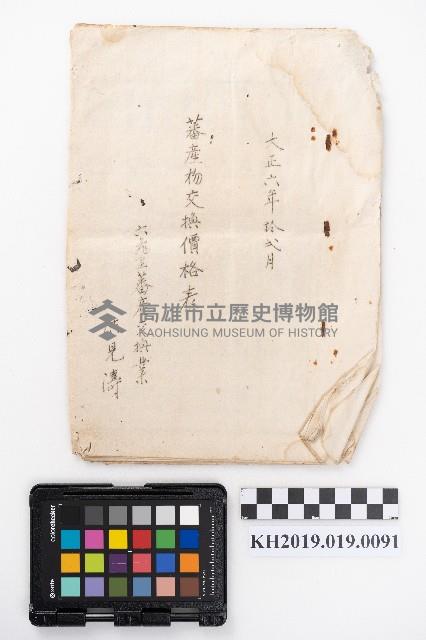 大正六年拾弍月
蕃産物交換價格表
六龜里蕃産交換業
見濤
高雄市立歷史博物館
KAOHSIUNG MUSEUM OF HISTORY
KH2019.019.0091
colorchecker
x-rite